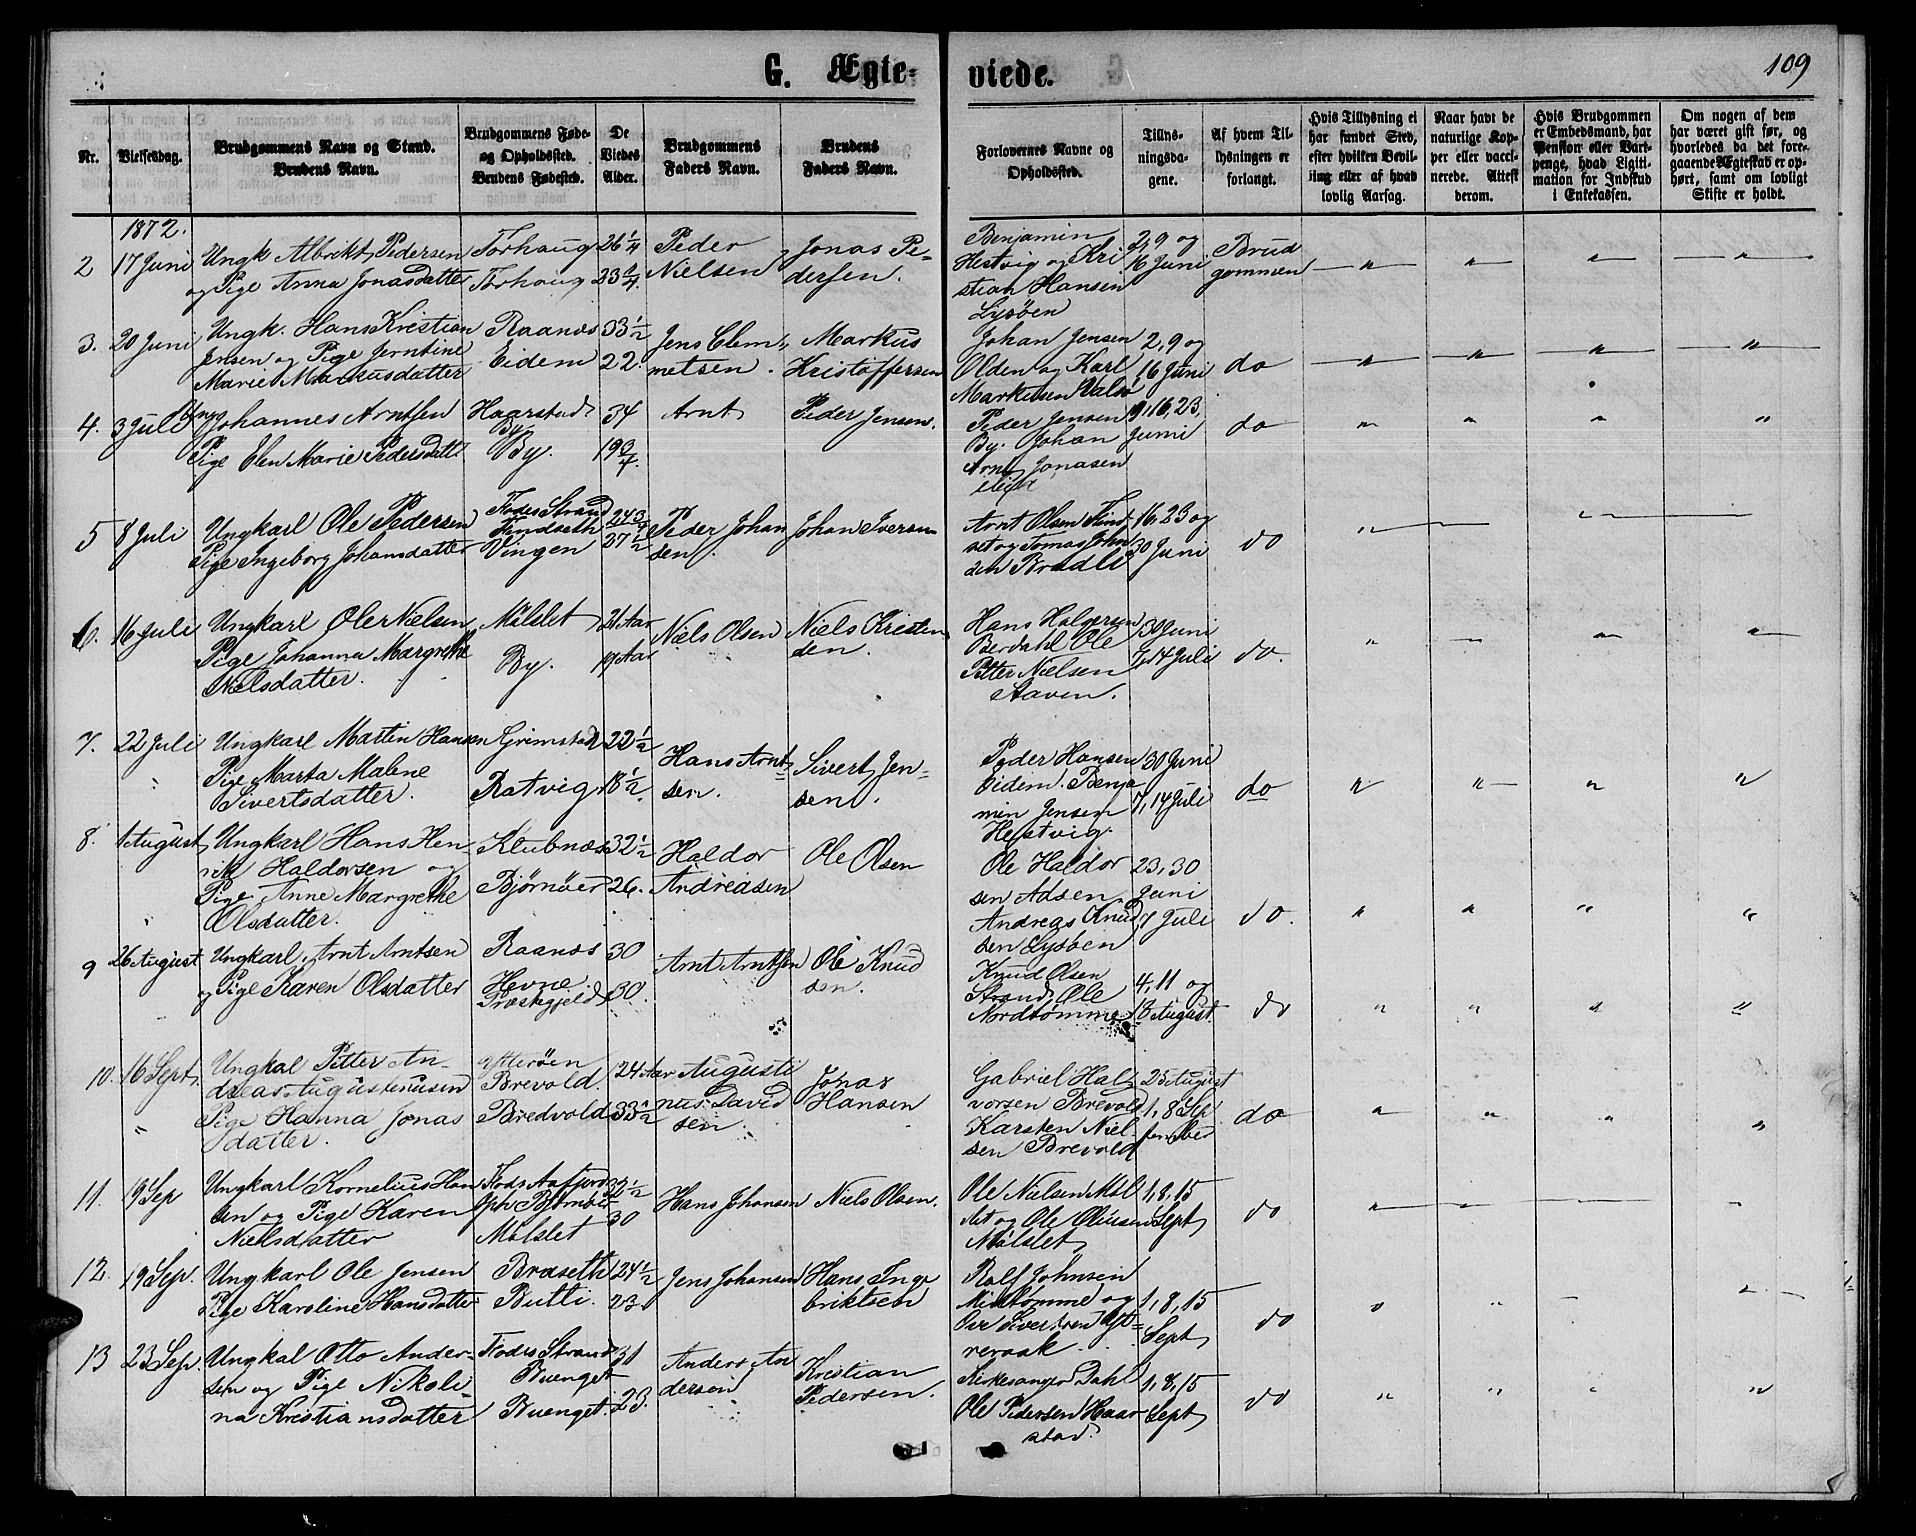 G. Ægte-
viede.
109
Nr.
Vielsesdag.
Brudgommens Navn og Stand.
Brudens Navn.
Brudgommens Føde-
og Opholdssted.
Brudens Fødested.
De
Viedes
Alder.
Brudgommens
Faders Navn.
Brudens
Faders Navn.
Forlovernes Navne og
Opholdssted.
Tillys-
ningsda-
gene.
Af hvem Til-
lysningen er
forlangt.
Hvis Tillysning ei
har fundet Sted,
efter hvilken Bevil-
ling eller af hvad
lovlig Aarsag.
Naar havt de
naturlige Kop-
per eller vacci-
nerede. Attest
derom.
Hvis Brudgommen
er Embedsmand, har
Pension eller Vart-
penge, hvad Ligiti-
mation for Indskud
i Enkekassen.
Om nogen af dem
har været gift før, og
hvorledes da det fore-
gaaende Ægteskab er op-
hørt, samt om lovligt
Skifte er holdt.
1872.
2 17 Juni
Ungk Albrekt Pedersen
og Pige Anna Jonasdatter
Torhaug
Torhaug
26 1/4
23 1/4
Peder
Nielsen
Jonas Pe-
dersen.
Benjamin
Hestvig og Kri
stian Hansen
Lysöen
2, 9 og
16 Juni
Brud
gommen
3. 20 Juni
Ungk. Hans Kristian
Jensen og Pige Jerntine
Marie Markusdatter
Raanes
Eidem
33 1/2
22.
Jens Clem
metsen.
Markus
Kristoffersen
Johan Jensen
Olden og Karl
Markusen Valsö
2, 9 og
16 Juni
do
4. 3 Juli
Ungk Johannes Arntsen
Pige Elen Marie Pedersdatt
Haarstad
By
By.
34
19 3/4.
Arnt
Peder Jensen.
Peder Jensen
By. Johan
Arnt Jonasen
9, 16, 23,
Juni
do
5 8 Juli
Ungkarl Ole Pedersen
Pige Ingeborg Johansdatter
Fodes Strand
Findseth
Vingen
24 3/4
27 1/2
Peder Johan
sen.
Johan Iversen
Arnt Olsen Find
set og Tomas John
sen Bradli
16, 23 og
30 Juni
do
6. 16 Juli
Ungkarl Ole Nielsen
Pige Johanna Margrethe
Nielsdatter.
Målslet
By.
21 Aar
19 Aar
Niels Olsen
Niels Kristen
sen.
Hans Holgersen
Berdahl Ole
Petter Nielsen
Staven.
30 Juni
7, 14 Juli
do.
7. 22 Juli
Ungkarl Martin Hansen
Pige Marta Malene
Sivertsdatter.
Grimstad
Ratvig
22 1/2
18 1/2.
Hans Arnt
sen.
Sivert Jen-
sen.
Peder Hansen
Eidem. Benja
min Jensen
Hestvig.
30 Juni
7, 14 Juli
do
8. 1 August
Ungkarl Hans Hen-
rik Haldorsen og
Pige Anne Margrethe
Olsdatter.
Klubnæs
Bjørnøer
32 1/2
26.
Haldor
Andreasen
Ole Olsen
Ole Haldor
sen Adsen
Andreas Knud
sen Lysöen
23, 30
Juni
7 Juli
do.
9 26 August
Ungkarl Arnt Arntsen
og Pige Karen Olsdatter
Raanes
Hevne
Præstegjeld
30
30.
Arnt Arntsen
Ole Knud
sen.
Knud Olsen
Strand, Ole
Nordtömme
4, 11 og
18 August.
do
10. 16 Sept.
Ungkal Pitter An-
dreas Augustinusen
Pige Hanna Jonas
datter.
Ytterøen
Brevold.
Bredvold
24 Aar
33 1/2
Augusti
nus David
sen
Jonas
Hansen
Gabriel Hal
vorsen Brevold
Karsten Niel-
sen Brevold
25 August
1, 8 Sep
tember
do
11. 19 Sep
Ungkarl Kornelius Han
sen og Pige Karen
Nielsdatter
Fods Aafjord
Oph. Bjørnöer
Målslet
32 1/2
30
Hans Johansen
Niels Olsen.
Ole Nielsen Mål
slet og Ole Oleusen
Målslet
1, 8, 15
Sept
do
12. 19 Sep.
Ungkarl Ole Jensen
Pige Karoline Hansdatter
Braseth
Butli.
24 1/2
23
Jens Johansen
Hans Inge
briktsen
Rolf Johnsen
Midtömme og
Ove Sivertsen Yt-
reraak
1, 8, 15
Sept
do
13 23 Sep.
Ungkal Otto Ander-
sen og Pige Nikoli-
na Kristiansdatter
Fodes Strand
Buenget
Buenget.
31
23.
Anders An
dersen
Kristian
Pedersen.
Kirkesanger Dahl
Ole Pedersen Haar
stad.
1, 8, 15
Sept
do